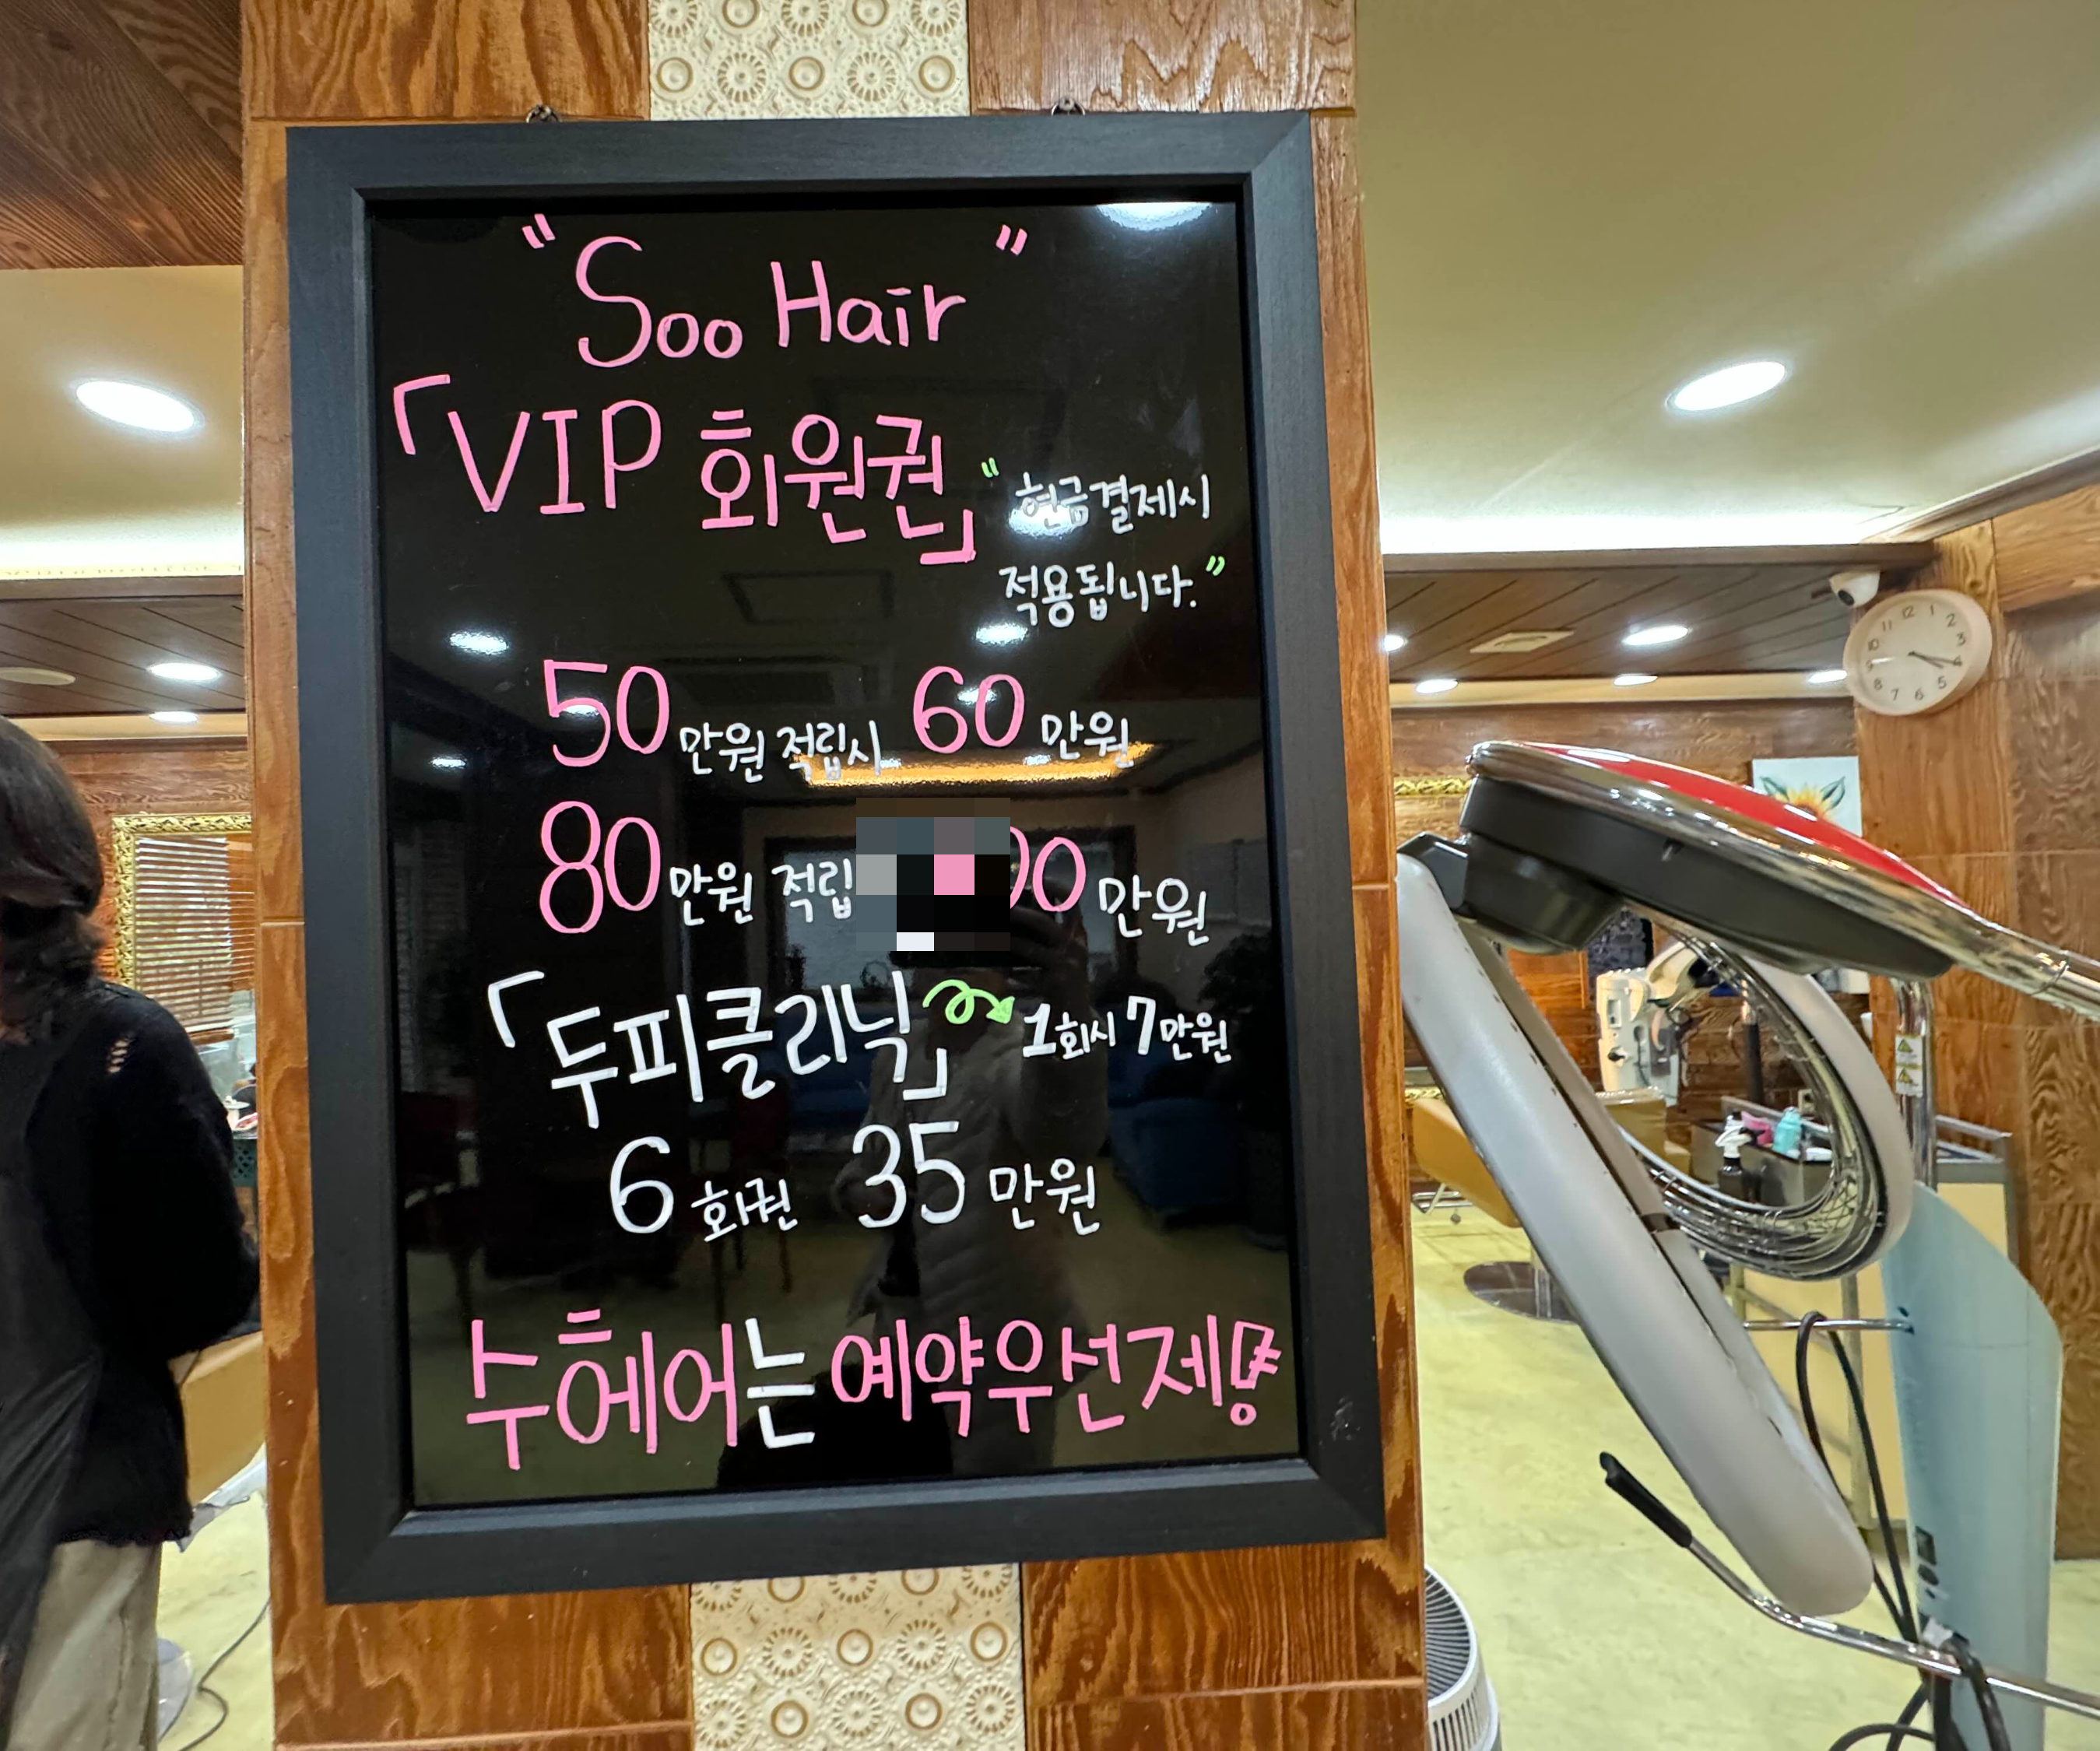 "Soo Hair"
「VIP 회원권」 "현금결제시
적용됩니다."
50만원 적립시 60만원
80만원 적립 만원
「두피클리닉」 1회시 7만원
6회권 35만원
수헤어는 예약우선제!
12 1 2 3 5 6 7 8 9 10 11